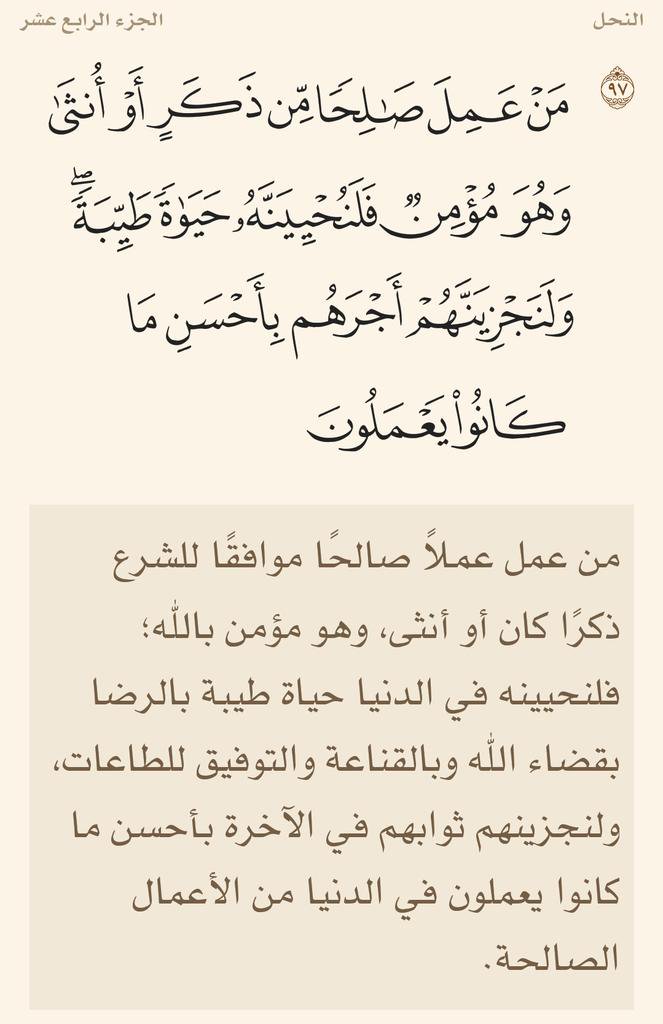 النحل
الجزء الرابع عشر
٩٧
مَنْ عَمِلَ صَـٰلِحًا مِّن ذَكَرٍ أَوْ أُنثَىٰ
وَهُوَ مُؤْمِنٌ فَلَنُحْيِيَنَّهُۥ حَيَوٰةً طَيِّبَةً ۖ
وَلَنَجْزِيَنَّهُمْ أَجْرَهُم بِأَحْسَنِ مَا
كَانُوا۟ يَعْمَلُونَ
من عمل عملاً صالحًا موافقًا للشرع
ذكرًا كان أو أنثى، وهو مؤمن بالله؛
فلنحيينه في الدنيا حياة طيبة بالرضا
بقضاء الله وبالقناعة والتوفيق للطاعات،
ولنجزينهم ثوابهم في الآخرة بأحسن ما
كانوا يعملون في الدنيا من الأعمال
الصالحة.